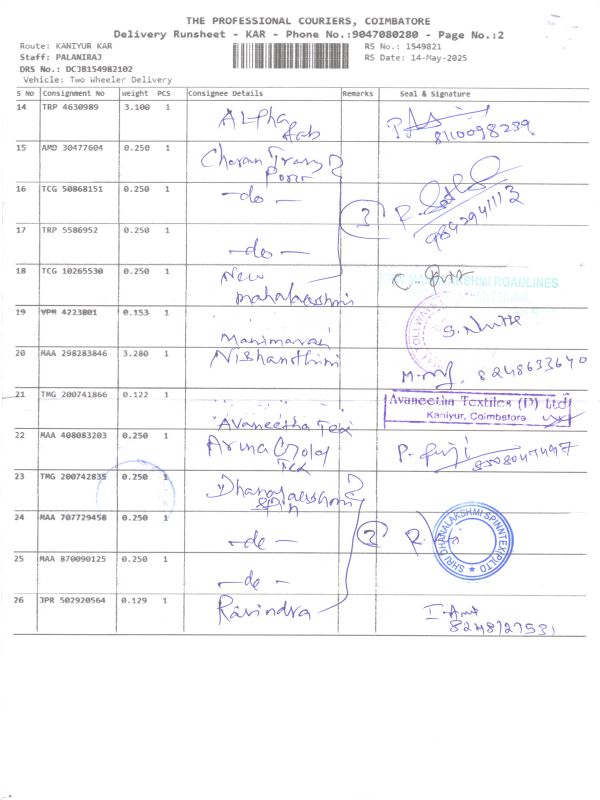 THE PROFESSIONAL COURIERS, COIMBATORE
Delivery Runsheet - KAR - Phone No.:9047080280 - Page No.:2
Route: KANIYUR KAR
RS No.: 1549821
Staff: PALANIRAJ
RS Date: 14-May-2025
DRS No.: DCJB154982102
Vehicle: Two Wheeler Delivery
S No Consignment No Weight PCS Consignee Details Remarks Seal & Signature
14 TRP 4630989 3.100 1 Alpha
Lab
8110098239
15 AMD 30477604 0.250 1 Charan Trans
16 TCG 50868151 0.250 1 -do-
3
9842941113
17 TRP 5586952 0.250 1 -do-
18 TCG 10265530 0.250 1 New
Mahalakshmi
MAHALAKSHMI ROADLINES
19 VPM 4223801 0.153 1 Manimaran
20 MAA 298283846 3.280 1 Nishanthini
8248633640
21 TMG 200741866 0.122 1 Avaneetha Tex
Avaneetha Textiles (P) Ltd
Kaniyur, Coimbatore
22 MAA 408083203 0.250 1 Aruna Gold
Tex
23 TMG 200742835 0.250 1 Dhanalakshmi
Spin
24 MAA 707729458 0.250 1 -do-
2
SHRI DHANALAKSHMI SPINNTEX(P)LTD
25 MAA 870090125 0.250 1 -do-
26 JPR 502920564 0.129 1 Ravindra
8248127531